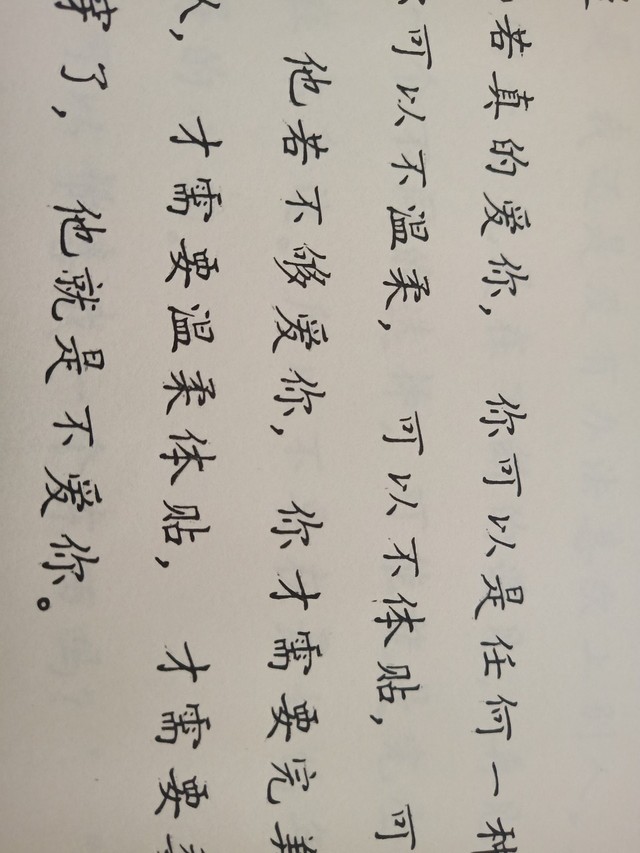 若真的爱你，你可以是任何一种
可以不温柔，可以不体贴，可
他若不够爱你，你才需要完美
人，才需要温柔体贴，才需要
穿了，他就是不爱你。